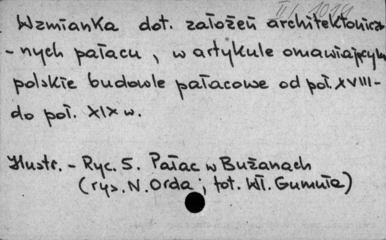 Wzmianka dot. założeń architektonicz
-nych pałacu, w artykule omawiającym
polskie budowle pałacowe od poł. XVIII-
do poł. XIX w.
Ilustr. - Ryc. 5. Pałac w Bużanach
(rys. N. Orda; fot. Wł. Gumuła)